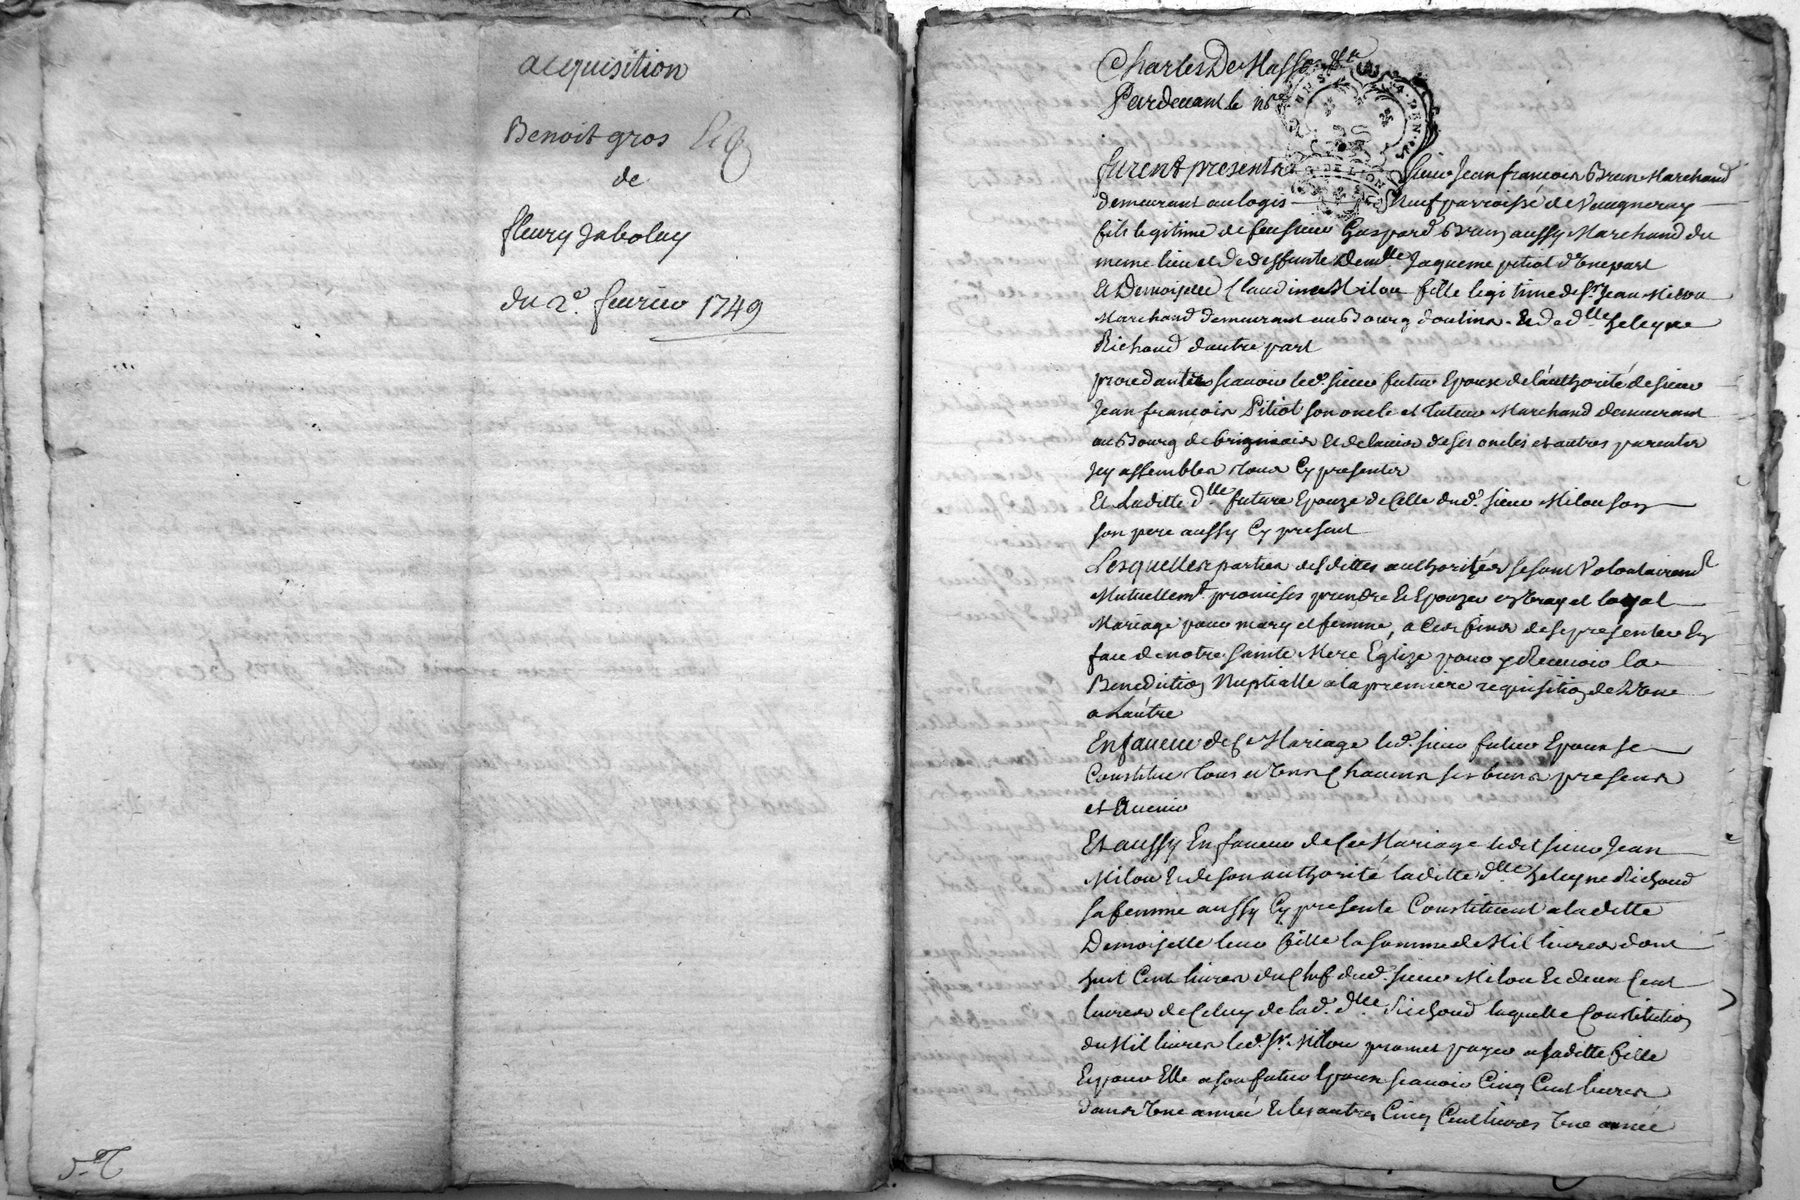 acquisition
Benoit gros
de
fleury Jaboley
du 2e. feurier 1749
Charles De Masso
Pardeuant le no.re
furent presents Sieur Jean françois Brun Marchand
demeurant au logis neuf parroisse de Vaugneray
fils legitime de feu sieur Gaspard Brun aussy Marchand du
meme lieu et de deffunte Demlle Jaqueme pitiot d'Une part
Et Demoiselle Claudine Milou fille legitime de sr Jean Milou
Marchand demeurant au Bourg doulins Et de dlle heleyne
Richoud dautre part
procedants scauoir led. sieur futur Epoux de l'authorité de sieur
Jean françois Pitiot son oncle et tuteur Marchand demeurant
au Bourg de brignais Et de lauis de ses oncles et autres parents
Icy assemblés tous Cy presents
Et Laditte dlle future Epouze de Celle dud. sieur Milou son
son pere aussy Cy present
Lesquelles parties desdittes authorités se sont Volontairemt
Mutuellemt. promises prendre Et Epouzer en Vray et loyal
Mariage pour mary et femme, a Ces fins de se presenter En
face de notre Sainte Mere Eglize pour y Receuoir la
Benediction Nuptialle a la premiere requisition de L'Une
a Lautre
En faueur de Ce Mariage led. sieur futur Epoux se
Constitue tous et Uns Chacuns ses biens presens
et Auenir
Et aussy En faueur de Ce Mariage ledit sieur Jean
Milou Et de son authorité laditte dlle heleyne Richoud
sa femme aussy Cy presente Constituent a laditte
Demoiselle leur fille la somme de Mil liures dont
huit Cent liures du Chef dud. sieur Milou Et deux Cent
liures de Celuy de lad. dlle Richoud laquelle Constitution
du Mil liures led. sr. Milou promet payer a saditte fille
Et pour Elle a son futur Epoux scauoir Cinq Cent liures
dans Une année Et les autres Cinq Cent liures Une année